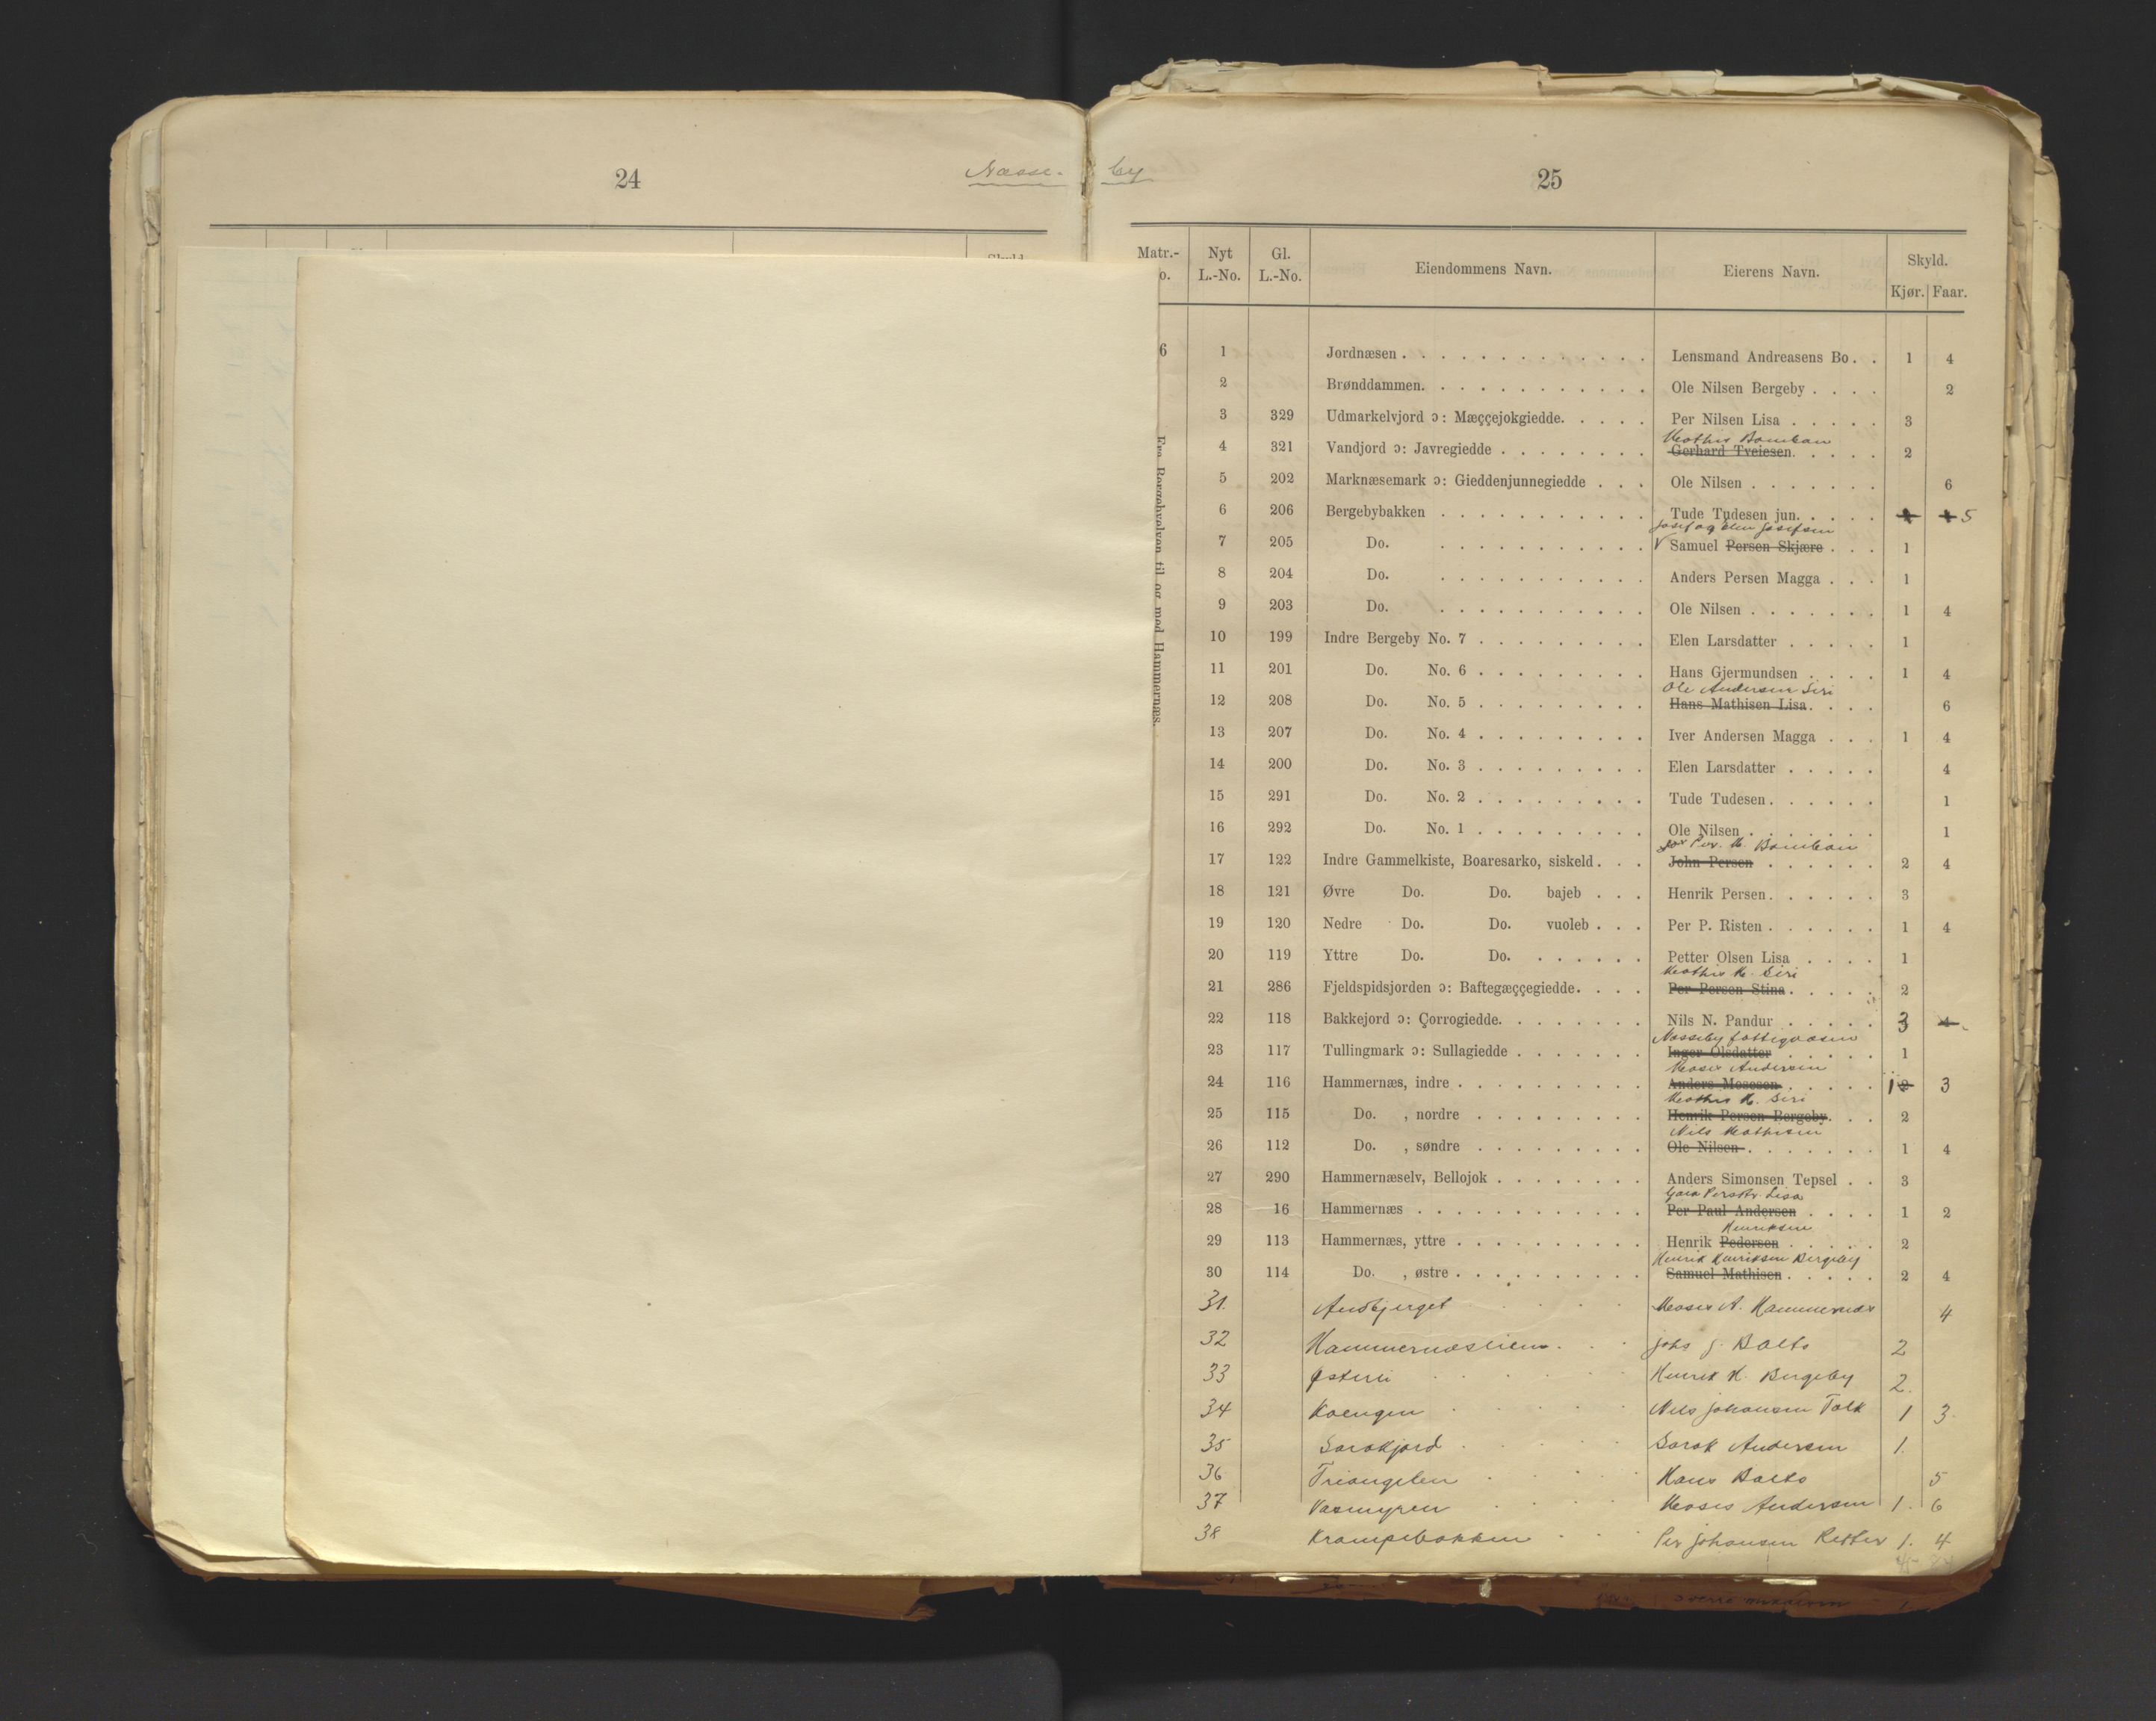 24
Næsse-
by
25
Matr.-
o.
Nyt
L.-No.
Gl.
L.-No.
Eiendommens Navn.
Eierens Navn.
Skyld.
Kjør. Faar.
Fra Bergebyelven til og med Hammernæs.
6 1 Jordnæsen . . . Lensmand Andreasens Bo . . 1 4
2 Brønddammen. . . . Ole Nilsen Bergeby . . . . 2
3 329 Udmarkelvjord ɔ: Mæççejokgiedde. . . . . Per Nilsen Lisa . . . . . 3
Mathis Banikan
4 321 Vandjord ɔ: Javregiedde . . . Gerhard Tveiesen. . . . . 2
5 202 Marknæsemark ɔ: Gieddenjunnegiedde . . . Ole Nilsen . . . . . . . 6
6 206 Bergebybakken . . . Tude Tudesen jun. . . . . 5
Josef og Elen Josefsen
7 205 Do. . . . Samuel Persen Skjære . . . 1
8 204 Do. . . . Anders Persen Magga . . . 1
9 203 Do. . . . Ole Nilsen . . . . . . . 1 4
10 199 Indre Bergeby No. 7 . . . Elen Larsdatter . . . . . 1
11 201 Do. No. 6 . . . Hans Gjermundsen . . . . 1 4
Ole Andersen Siri
12 208 Do. No. 5 . . . Hans Mathisen Lisa. . . . 6
13 207 Do. No. 4 . . . Iver Andersen Magga . . . 1 4
14 200 Do. No. 3 . . . Elen Larsdatter . . . . . 4
15 291 Do. No. 2 . . . Tude Tudesen. . . . . . 1
16 292 Do. No. 1 . . . Ole Nilsen . . . . . . . 1
Per. H. Banikan
17 122 Indre Gammelkiste, Boaresarko, siskeld. . . John Persen . . . . . . 2 4
18 121 Øvre Do. Do. bajeb . . . Henrik Persen. . . . . . 3
19 120 Nedre Do. Do. vuoleb . . . Per P. Risten . . . . . . 1 4
20 119 Yttre Do. Do. . . . . . . Petter Olsen Lisa . . . . 1
Mathis H. Siri
21 286 Fjeldspidsjorden ɔ: Baftegæççegiedde. . . . Per Persen Stina . . . . . 2
22 118 Bakkejord ɔ: Çorrogiedde. . . . Nils N. Pandur . . . . . 3 4
Næsseby fattigvæsen
23 117 Tullingmark ɔ: Sullagiedde . . . Inger Olsdatter . . . . . 1
Moses Andersen
24 116 Hammernæs, indre . . . Anders Mosesen . . . . . 1 2 3
Mathis H. Siri
25 115 Do. , nordre . . . Henrik Persen Bergeby. . . 2
Nils Mathisen
26 112 Do. , søndre . . . Ole Nilsen . . . . . . . 1 4
27 290 Hammernæselv, Bellojok . . . Anders Simonsen Tepsel . . 3
Persdtr. Lisa
28 16 Hammernæs . . . Per Paul Andersen . . . . 1 2
Henriksen
29 113 Hammernæs, yttre . . . Henrik Pedersen . . . . . 2
Henrik Henriksen Bergeby
30 114 Do. , østre . . . Samuel Mathisen . . . . . 2 4
31. Moses A. Hammernæs 4
32 Hammernæslien. Johs J. Balto 2
33 Østerli Henrik H. Bergeby 2.
34 Kaengen Nils Johansen Talk 1 3
35 Sarakjord Sarak Andersen 1.
36 Triangelen Hans Balto 5
37 Vasmyren Moses Andersen 1. 6
38 Krampebakken Per Johansen Retter 1. 4